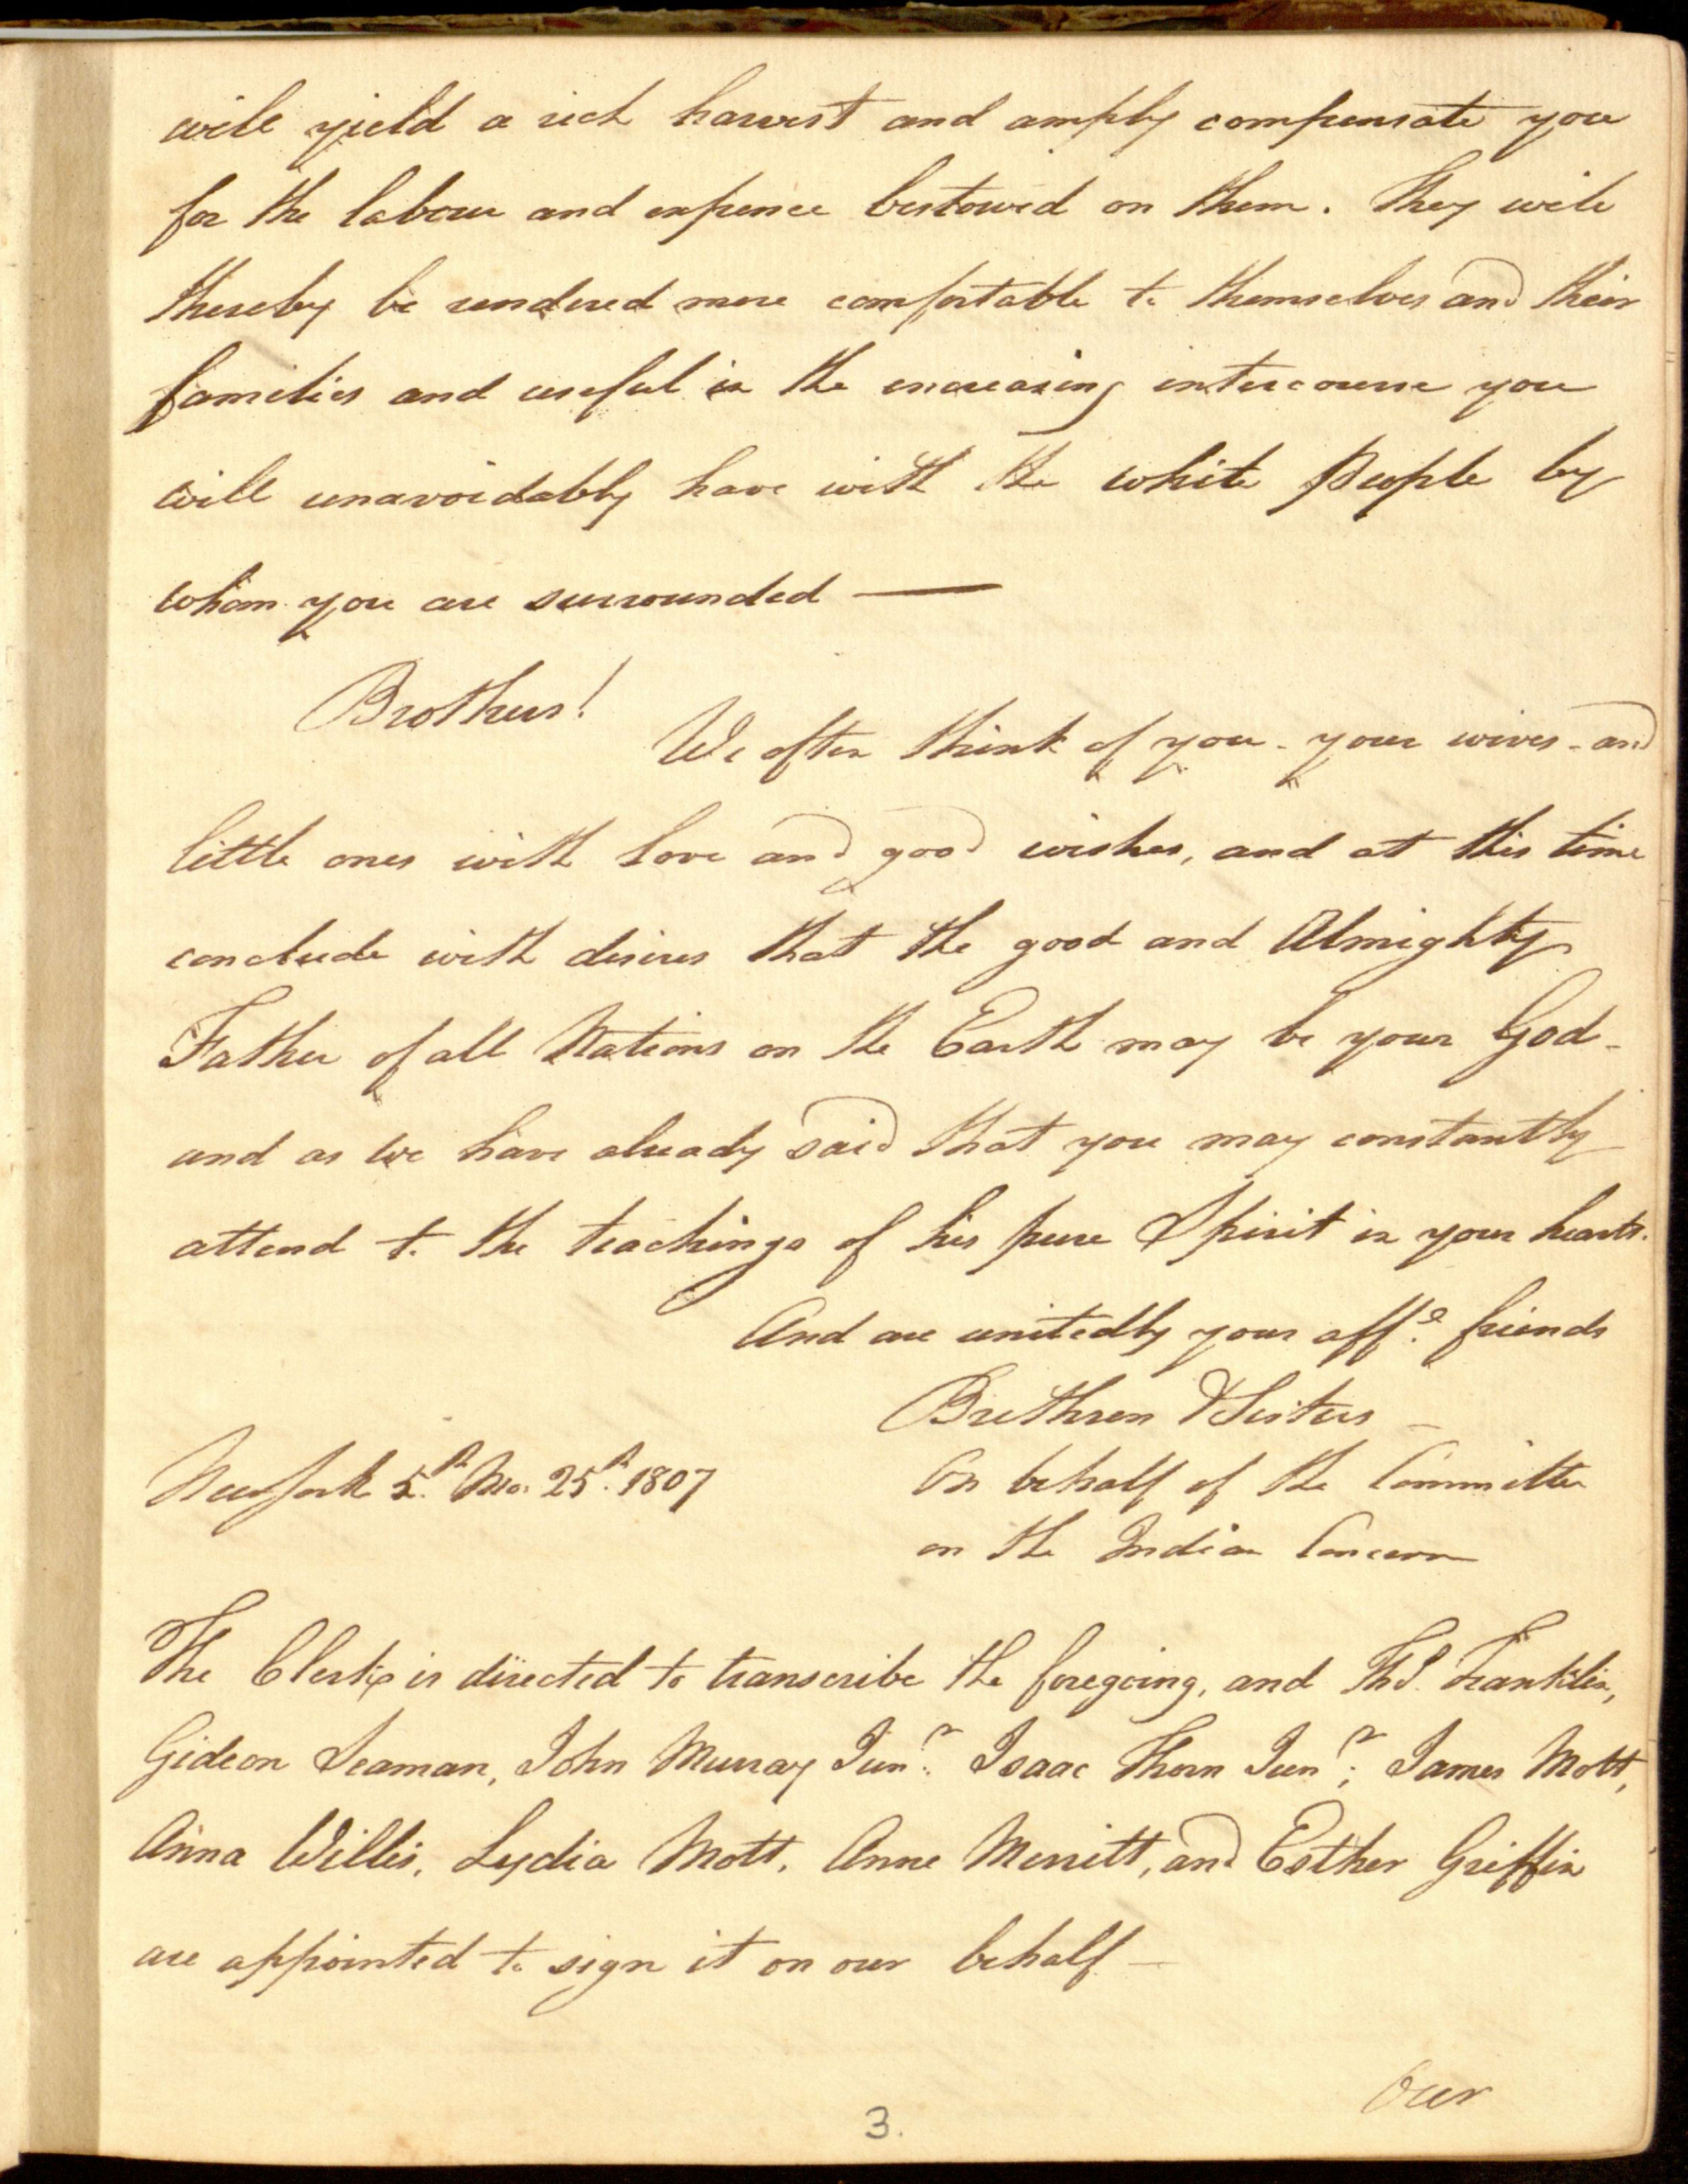 will yield a rich harvest and amply compensate you
for the labour and expence bestowed on them. They will
thereby be rendered more comfortable to themselves and their
families and useful in the encreasing intercourse you
will unavoidably have with the white People by
whom you are surrounded —
Brothers!
We often think of you - your wives - and
little ones with love and good wishes, and at this time
conclude with desires that the good and Almighty
Father of all Nations on the Earth may be your God -
and as we have already said that you may constantly
attend to the teachings of his pure Spirit in your hearts.
And are unitedly your affe. friends
Brethren & Sisters —
New York 5th. Mo. 25th. 1807
On behalf of the Committee
on the Indian Concern
The Clerk is directed to transcribe the foregoing, and Thos. Franklin,
Gideon Seaman, John Murray Junr. Isaac Thorn Junr; James Mott,
Anna Willis, Lydia Mott, Anne Merritt, and Esther Griffin
are appointed to sign it on our behalf —
Our
3.